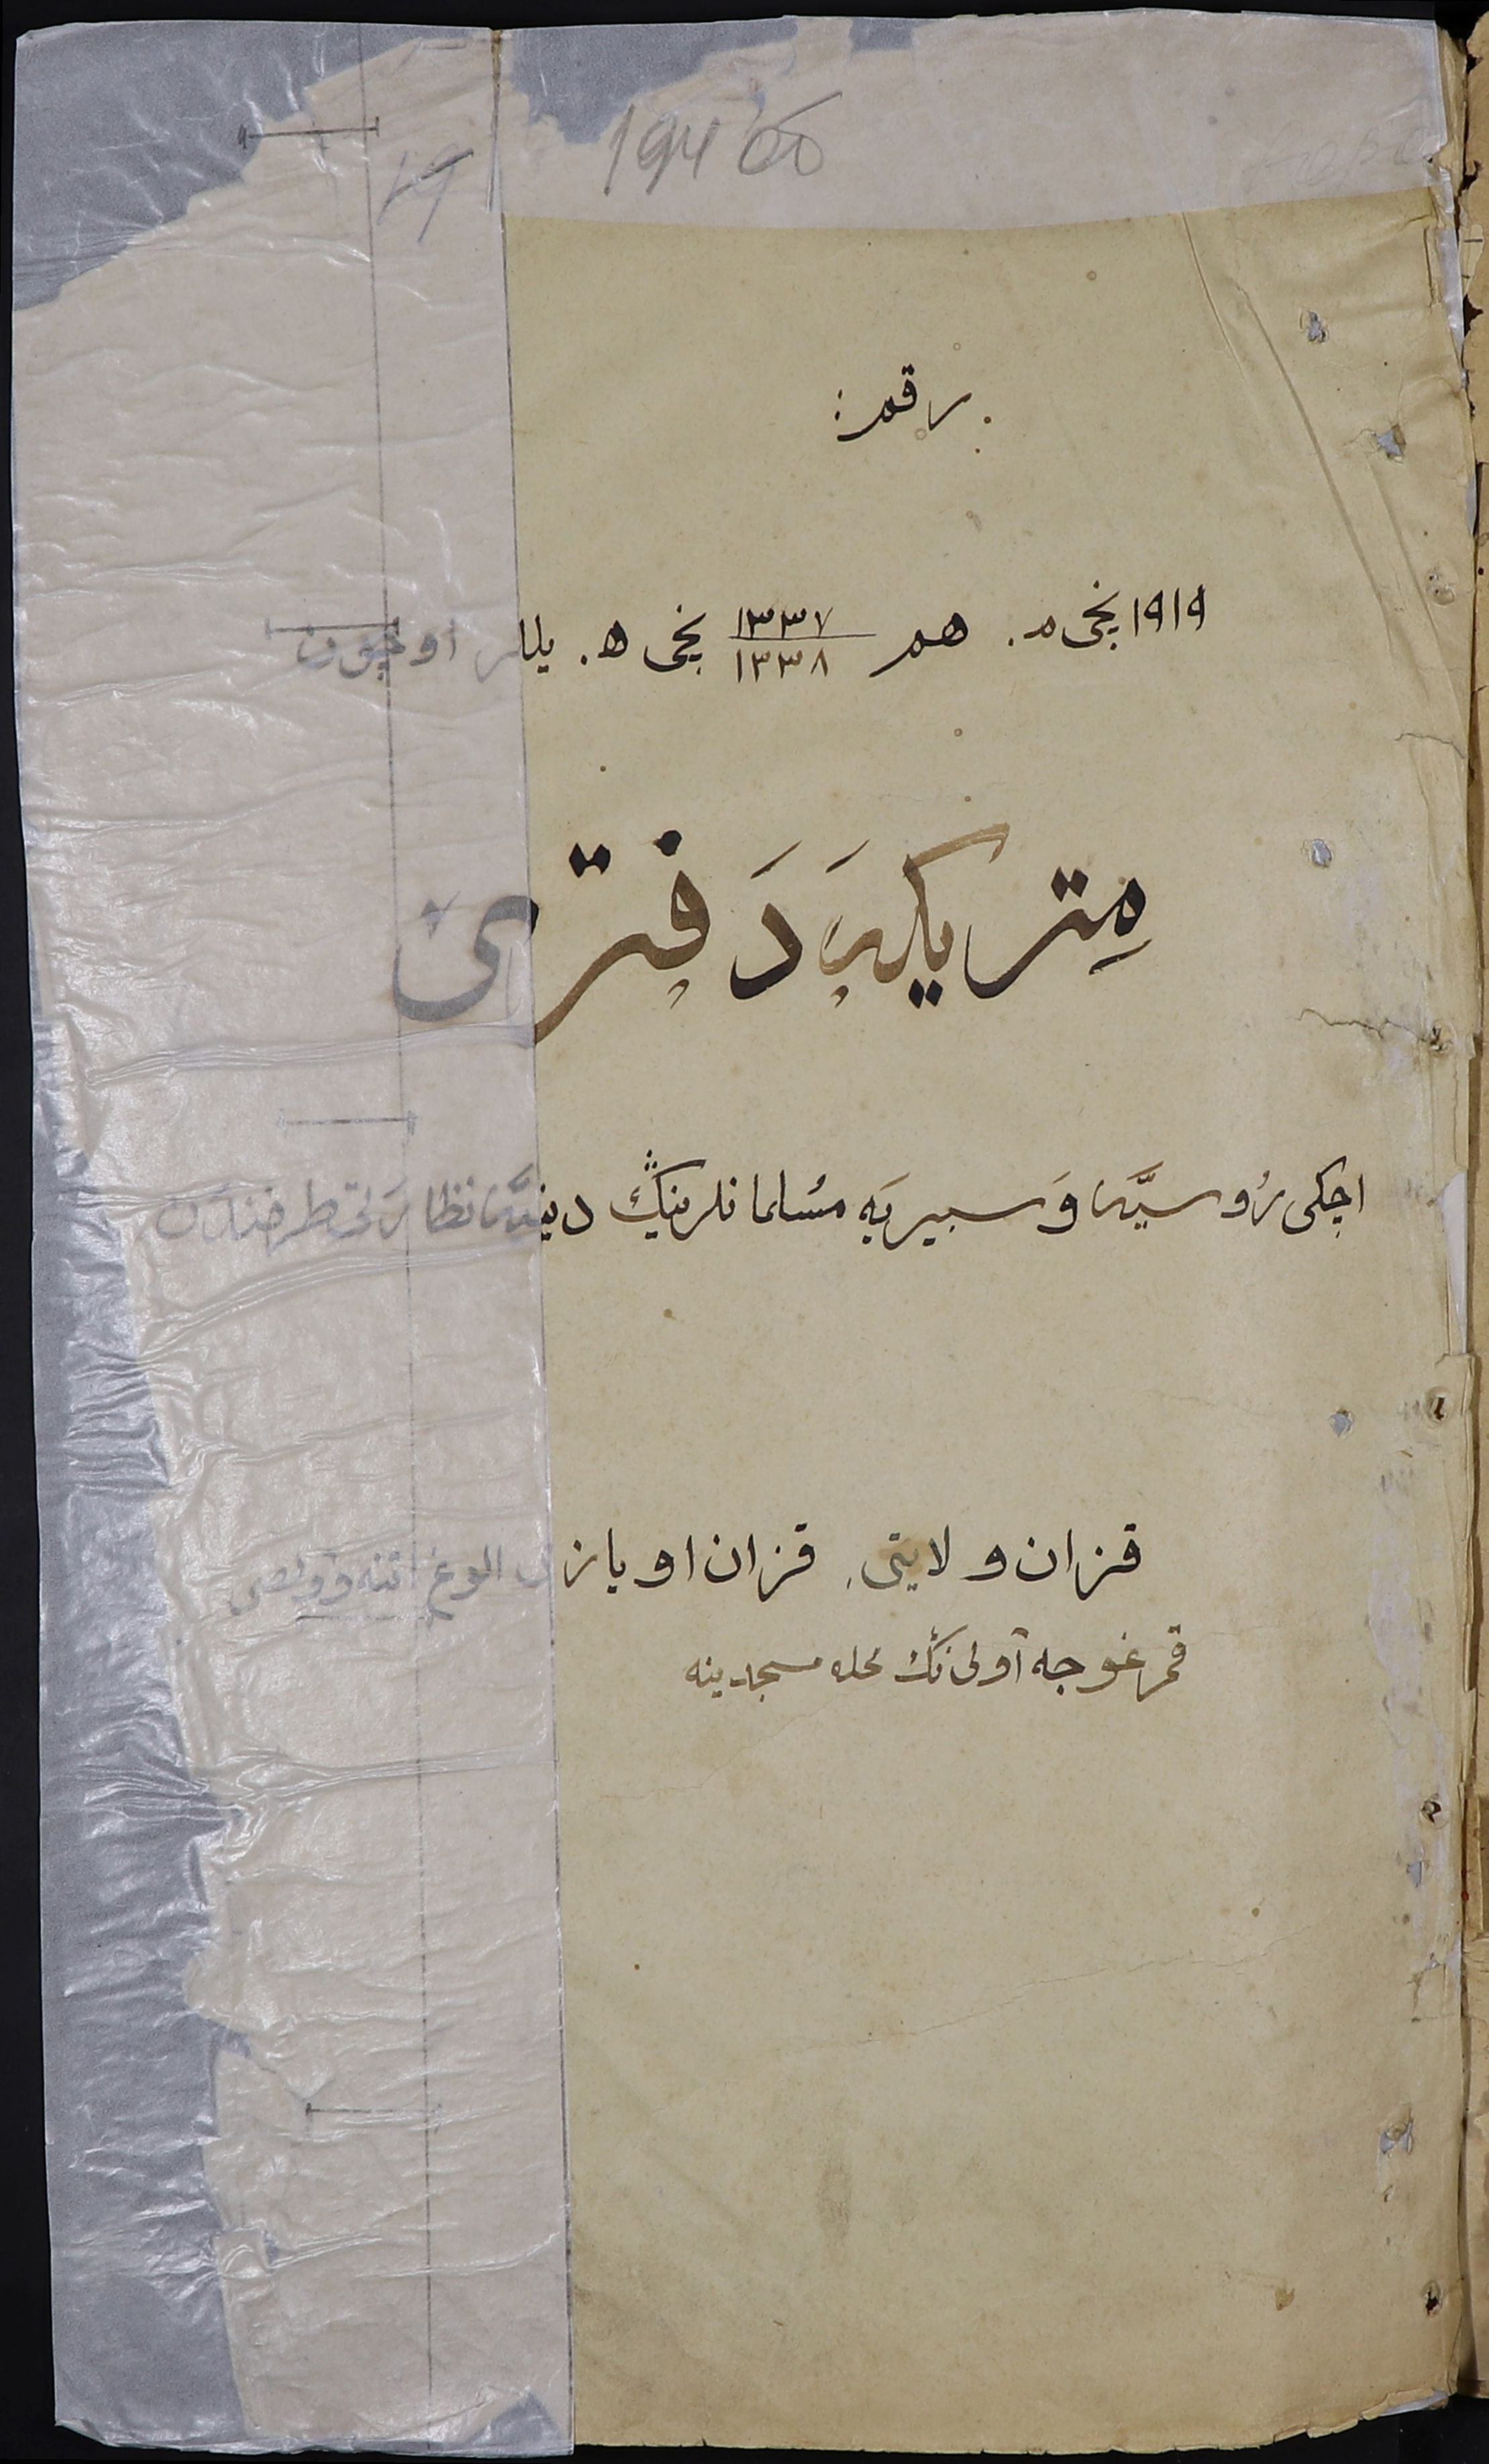 رقم:
۱۹۱۹ نچی م. هم ۱۳۳۷/۱۳۳۸ نچی ه. یللر اوچون
مِتریکَه دَفتری
اچکی رُوسیَّه وَ سیبیریَه مسُلمانلرینڭ دینیَّه نظارَتی طرفندن
قزان ولایتی، قزان اویازی الوغ اتنه وولصی
قمرغوجه آولی نڭ محله مسجدینه